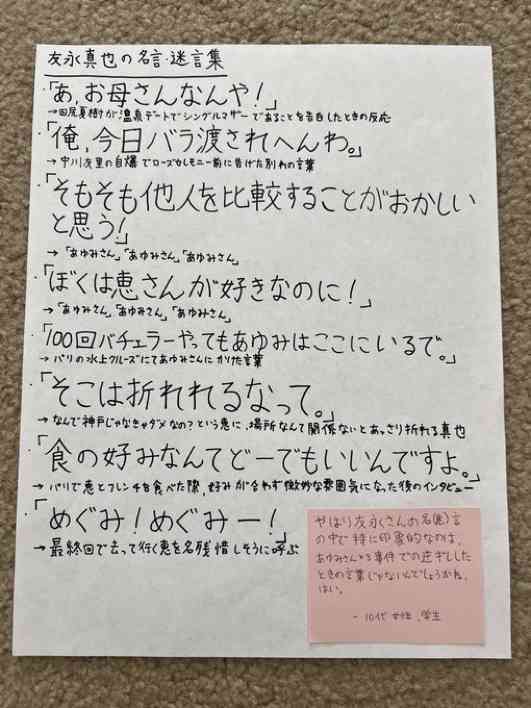 友永真也の名言・迷言集
・「あ,お母さんなんや！」
→田尻夏樹が温泉デートでシングルマザーであることを告白したときの反応
「俺,今日バラ渡されへんわ。」
→中川友里の自爆でローズセレモニー前に告げた別れの言葉
・「そもそも他人を比較することがおかしい
と思う！」
→「あゆみさん」「あゆみさん」「あゆみさん」
・「ぼくは恵さんが好きなのに！」
→「あゆみさん」「あゆみさん」「あゆみさん」
・「100回バチェラーやってもあゆみはここにいるで。」
→パリの水上クルーズにてあゆみさんにかけた言葉
・「そこは折れれるなって。」
→なんで神戸じゃなきゃダメなの？という恵に,場所なんて関係ないとあっさり折れる真也
・「食の好みなんてどーでもいいんですよ。」
→パリで恵とフレンチを食べた際,好みが合わず微妙な雰囲気になった後のインタビュー
・「めぐみ！めぐみー！」
→最終回で去って行く恵を名残惜しそうに呼ぶ
やはり友永さんの名(迷)言
の中で特に印象的なのは,
あゆみさん×3事件での逆ギレした
ときの言葉じゃないんでしょうかね,
はい。
- 10代 女性,学生